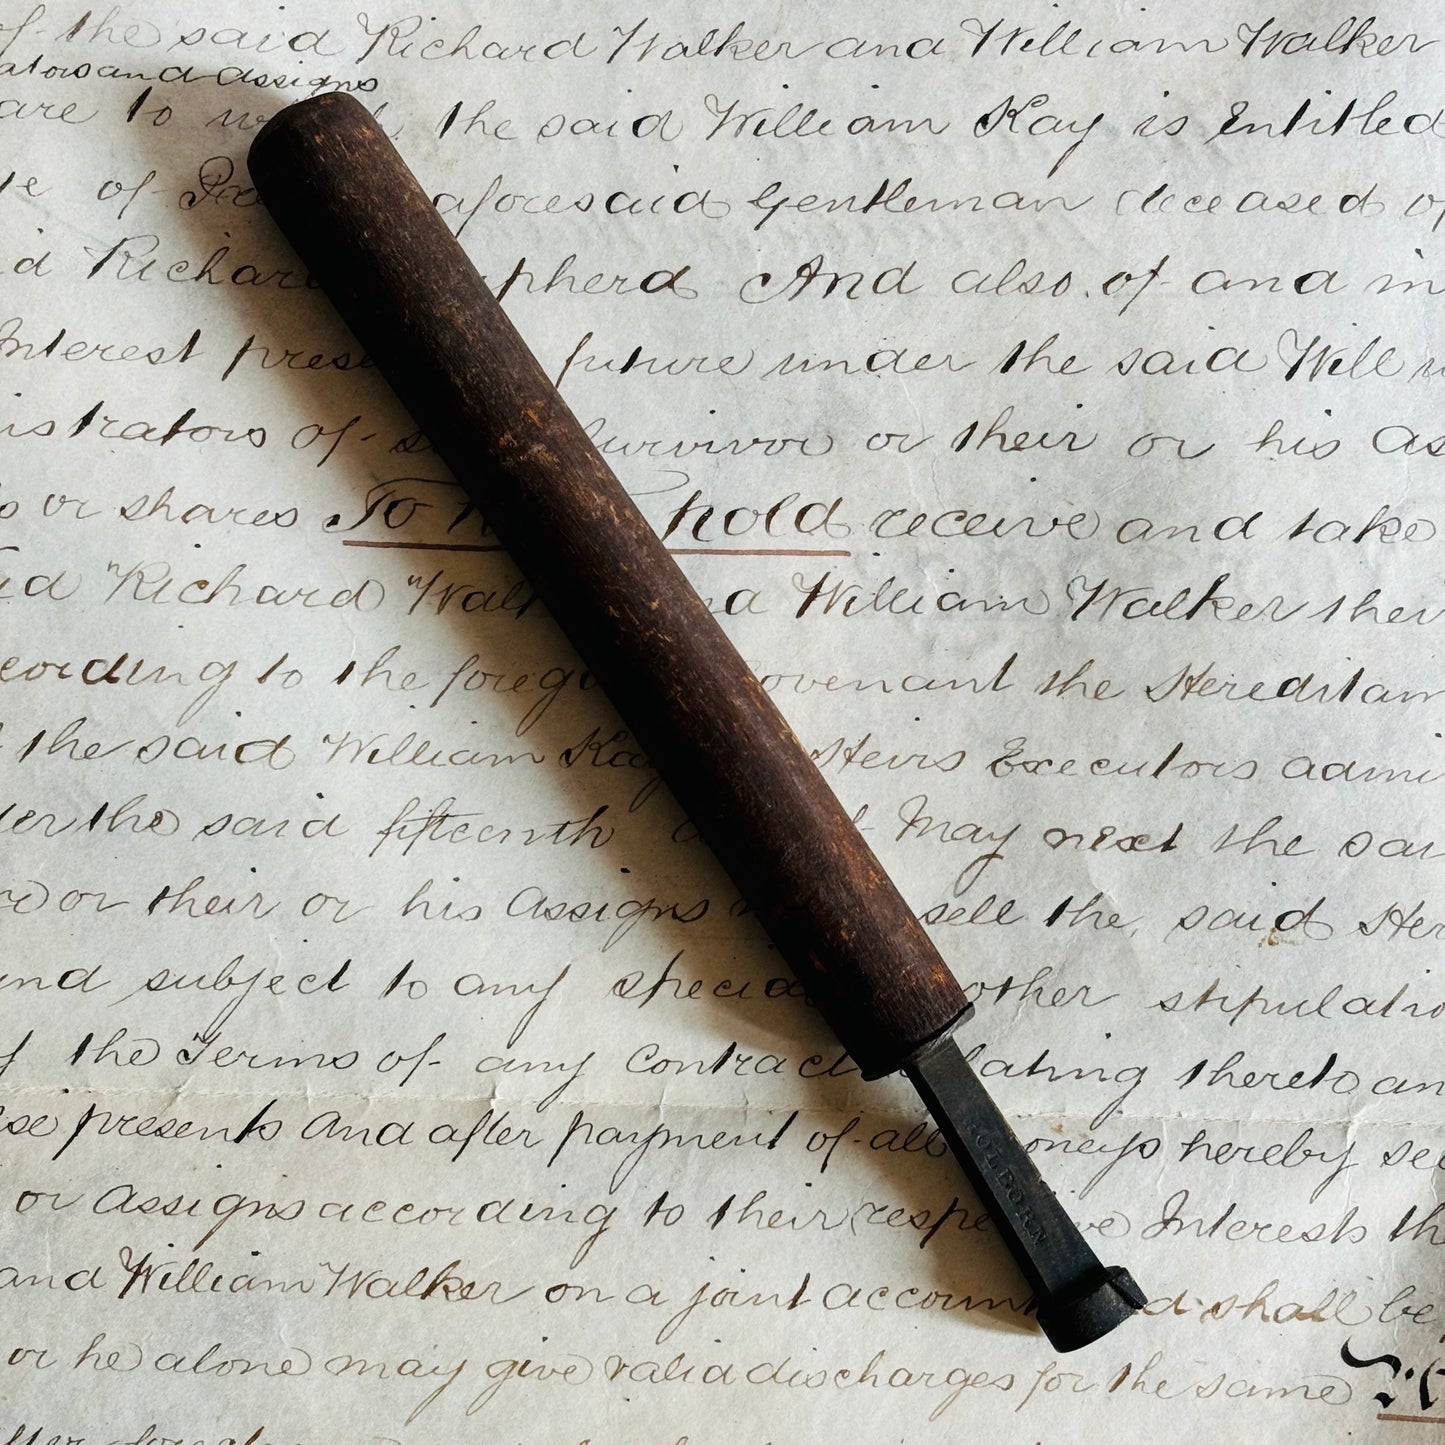 of the said Richard Walker and William Walker
ators and assigns
are to the said William Kay is Entitled
of aforesaid Gentleman deceased of
Richard And also of and in
Interest future under the said Will
of Survivor or their or his
or shares To hold receive and take
Richard William Walker their
to the Covenant the
the said William Kay Heirs Executors
the said fifteenth May next the
or their or his Assigns sell the said
and subject to any other
the Terms of any Contract thereto
presents And after payment of all hereby
or Assigns according to their Interests
and William Walker on a joint account shall be
or he alone may give valid discharges for the same
HOLBORN